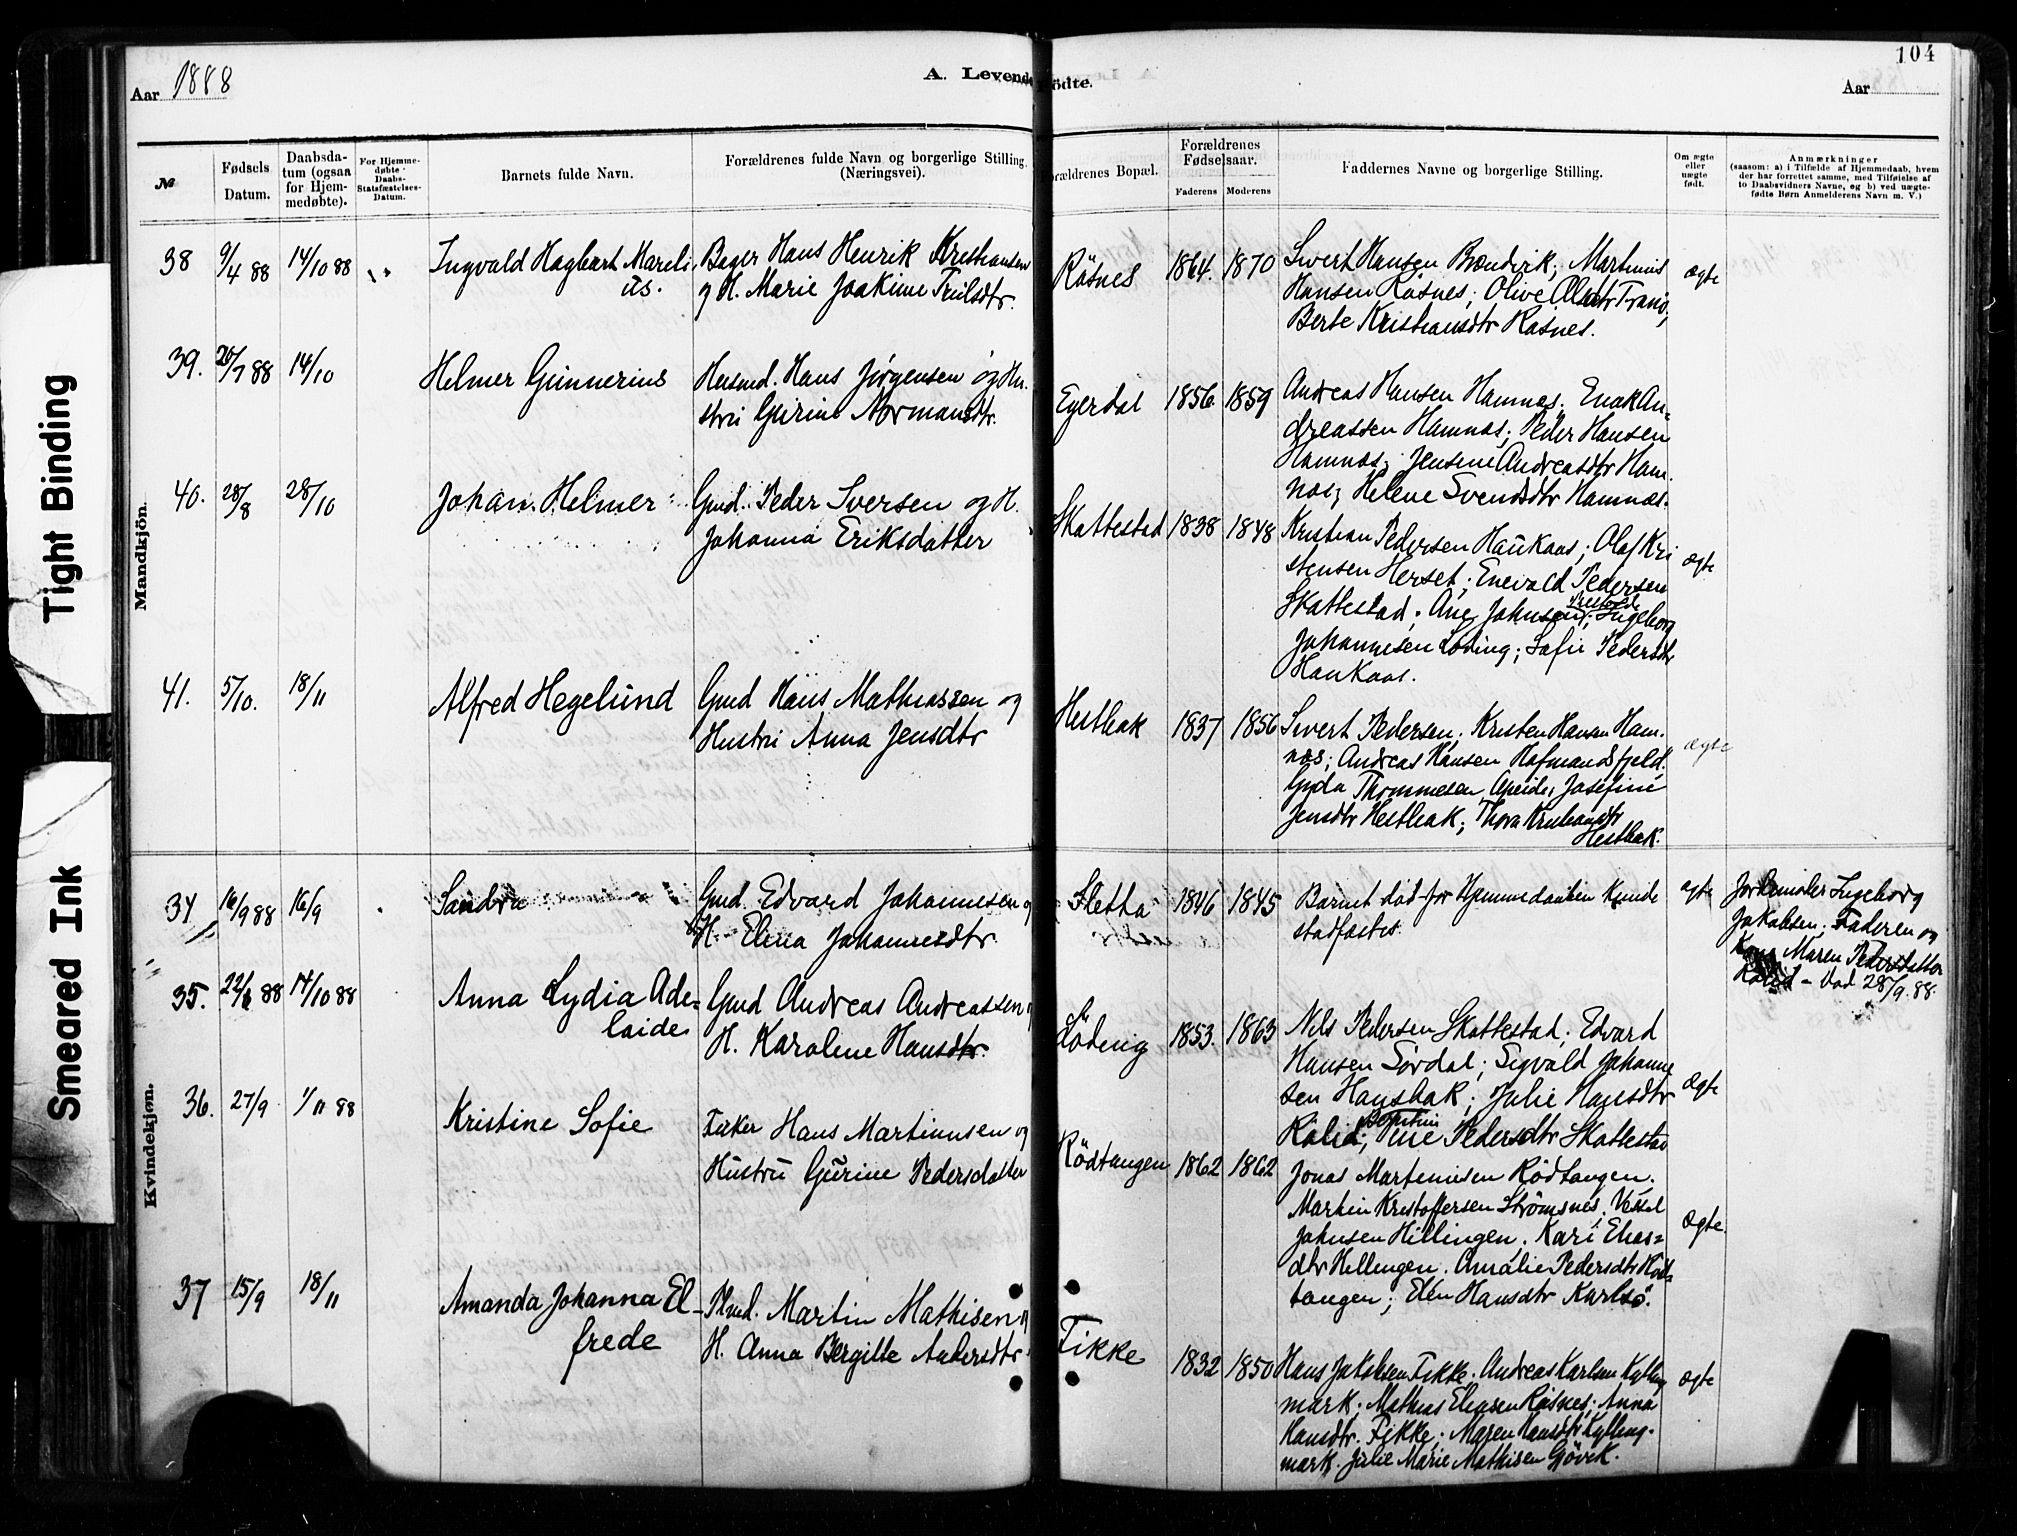 Tight Binding
Smeared Ink
104
Aar 1888
A. Levende
Födte.
Aar
№
Fødsels Datum.
Daabsdatum (ogsaa for Hjemmedøbte).
For Hjemmedøbte Daabs-Stafsfæstelses-Datum.
Barnets fulde Navn.
Forældrenes fulde Navn og borgerlige Stilling (Næringsvei).
Forældrenes Bopæl.
Forældrenes Fødselsaar.
Faderens
Moderens
Faddernes Navne og borgerlige Stilling.
Om ægte eller uægte født.
Anmærkninger
(saasom: a) i Tilfælde af Hjemmedaab, hvem der har forrettet samme, med Tilføielse af to Daabsvidners Navne, og b) ved uægtefødte Børn Anmelderens Navn m. V.)
Mandkjön.
38 9/4 88 14/10 88
Ingvald Hagbart Mareli
us.
Hans Henrik Kristiansen
og H. Marie Joakime
Røsnes 1864. 1870
Sivert Hansen Martinius
Hansen Røsnes; Olive
Berte Kristiansdtr Røsnes.
ægte
39. 26/7 88 14/10
Helmer Gunnerius
Husmd. Hans Jørgensen og Hu-
stru Gurine Normansdtr.
Egerdal 1856. 1859
Andreas Hansen Hamnæs. Enok An-
dreassen Hamnæs; Peder Hansen
Hamnæs; Jensine Andreasdtr Ham
næs; Helene Svendsdtr Hamnæs.
40. 28/8 28/10
Johan Helmer
Gmd. Peder Iversen og H.
Johanna Eriksdatter
Skattestad 1838 1848
Kristian Pedersen Haukaas; Olaf Kri
stensen Herset; Enevald Pedersen
Skattestad; Ane Johnsen; Ingeborg
Johannesen Løding; Sofie Pedersdtr
Haukaas.
ægte
41. 5/10. 18/11
Alfred Hegelund
Gmd Hans Mathiassen og
Hustru Anna Jensdtr
Hestbak 1837 1856
Sivert Pedersen; Kristen Hansen Ham-
næs; Andreas Hansen Hofmandsfjeld.
Gyda Thommesen Josefine
Jensdtr Hestbak; Thora
Hestbak.
ægte
Kvindekjön.
34 16/9 88 16/9
Sandra
Gmd. Edvard Johannesen og
H. Elena Johannesdtr.
Sletta 1846 1845
Barnet død før Hjemmedaaben kunde
stadfæstes.
ægte
Jordmoder Ingeborg
Jakobsen; Faderen og
Maren Pedersdatter
28/9. 88.
35. 14/10 88
Anna Lydia Ade-
laide
Gmd Andreas Andreassen og
H. Karoline Hansdtr.
Løding 1853. 1863
Nils Pedersen Skattestad; Edvard
Hansen Sørdal; Sigvald Johanne
sen Hausbak; Julie Hansdtr
Pedersdtr Skattestad
ægte
36. 27/9 1/11 88
Kristine Sofie
Hans Martinusen og
Hustru Gurine Pedersdatter
Rødtangen 1862 1862
Jonas Martinusen Rødtangen.
Martin Kristoffersen Strømsnes.
Johnsen Hillingen. Kari Elias-
dtr Hellingen. Amalie Pedersdtr Rød-
tangen; Elen Hansdtr Karlsø.
ægte.
37 15/9 18/11
Amanda Johanna El-
frede
Martin Mathisen og
H. Anna Bergitte Andersdtr
Fikke 1832 1850
Hans Jakobsen Fikke. Andreas Karlsen Kylling
mark. Mathias Eliasen Røsnes; Anna
Hansdtr. Fikke; Maren Hansdtr Kylling-
mark. Julie Marie Mathisen Gjøvik.
ægte